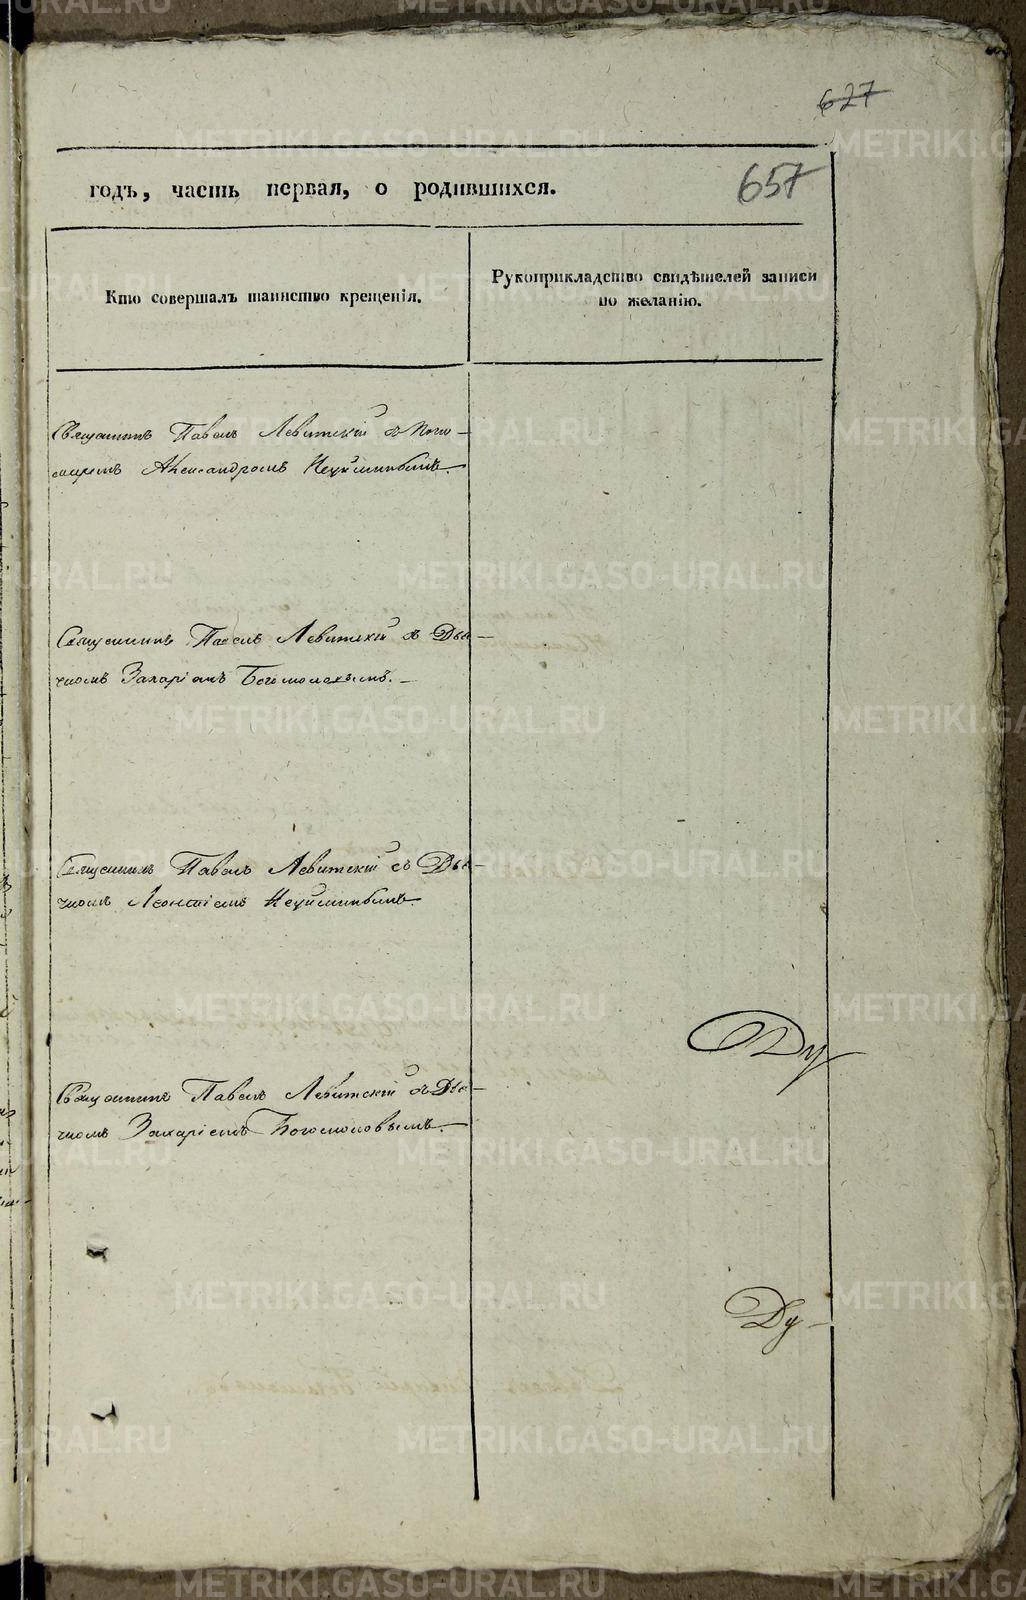 627
годъ, часть первая, о родившихся.
657
Кто совершалъ таинство крещенія.
Рукоприкладство свидѣтелей записи
по желанію.
Священникъ Павелъ Левитскій съ Поно-
маремъ Александромъ
Священникъ Павелъ Левитскій съ Дья-
чкомъ Захаріемъ Богомоловымъ.
Священникъ Павелъ Левитскій съ Дья-
чкомъ Леонтіемъ
Ду
Священникъ Павелъ Левитскій съ Дья-
чкомъ Захаріемъ Богомоловымъ.
Ду
METRIKI.GASO-URAL.RU